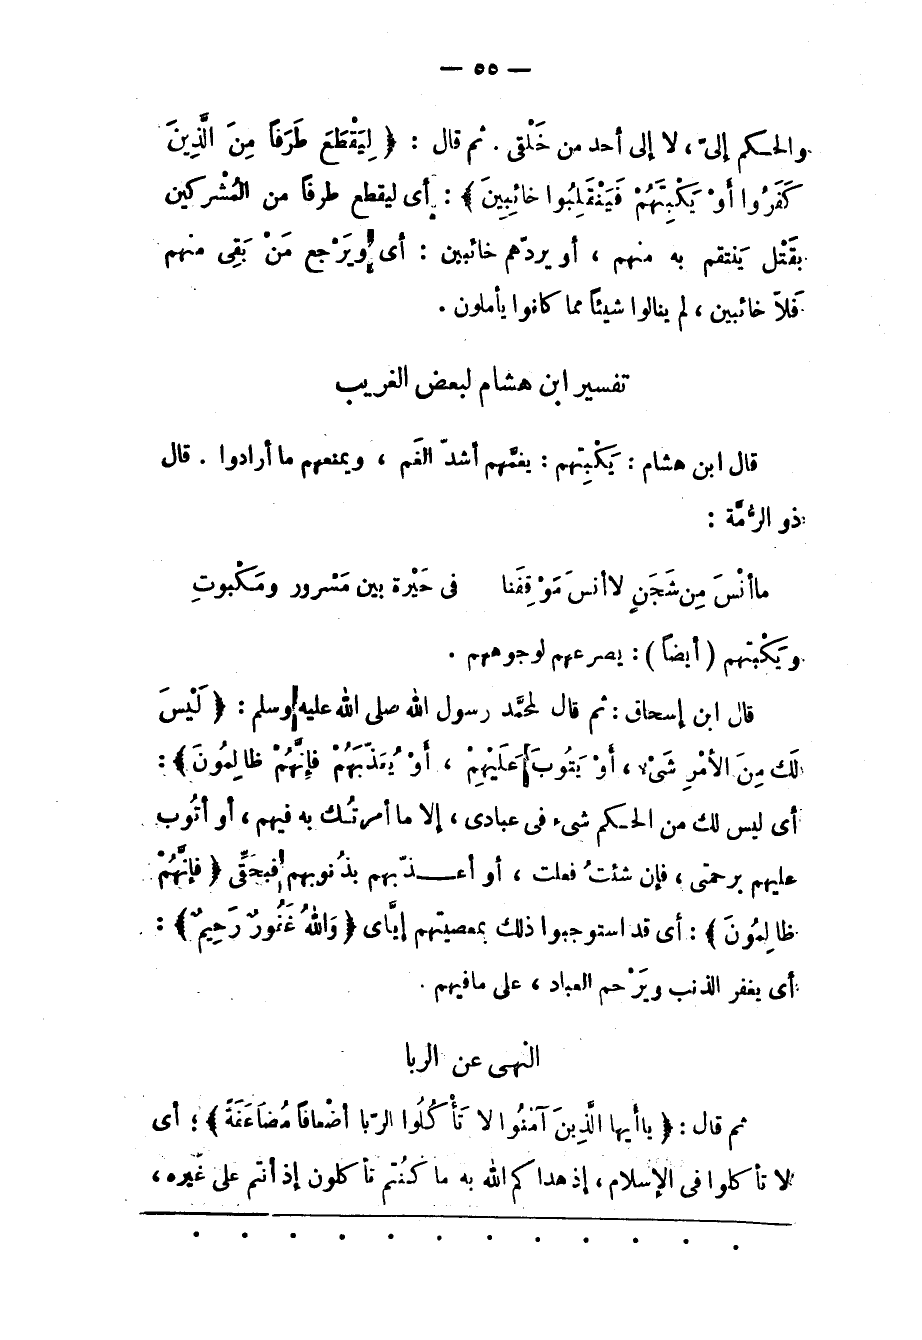 — ٥٥ —
والحكم إلىّ، لا إلى أحد من خَلْقى . ثم قال : ﴿ لِيَقْطَعَ طَرَفاً مِنَ الَّذِينَ
كَفَرُوا أَوْ يَكْبِتَهُمْ فَيَنْقَلِبُوا خائِبِينَ ﴾ : أى ليقطع طرفاً من المُشْركين
بقَتْل يَنتقم به منهم ، أو يردّهم خائبين : أى ويَرْجع مَنْ بَقِى منهم
فَلاًّ خائبين ، لم ينالوا شيئاً مما كانوا يأملون .
تفسير ابن هشام لبعض الغريب
قال ابن هشام : يَكْبِتهم : يغمَّهم أشدّ الغَم ، ويمنعهم ما أرادوا . قال
ذو الرُّمَّة :
ما أنْسَ مِن شَجَنٍ لا أنسَ مَوْقِفَنا فى حَيْرة بين مَسْرور ومَكْبوتِ
ويَكْبتهم ( أيضاً ) : يصرعهم لوجوههم .
قال ابن إسحاق : ثم قال لمحمَّد رسول الله صلى الله عليه وسلم : ﴿ لَيْسَ
لَكَ مِنَ الأمْرِ شَىْءٌ ، أوْ يَتُوبَ عَلَيْهِمْ ، أَوْ يُعَذّبَهُمْ فإنَّهُمْ ظالِمُونَ ﴾ :
أى ليس لك من الحكم شىء فى عبادى ، إلا ما أمرتُك به فيهم ، أو أتُوب
عليهم برحمتى ، فإن شئتُ فعلت ، أو أعذّبهم بذُنوبهم فبحَقِّى ﴿ فإنَّهُمْ
ظالِمُونَ ﴾ : أى قد استوجبوا ذلك بمعصيتهم إيَّاى ﴿ وَاللهُ غَفُورٌ رَحِيمٌ ﴾ :
أى يغفر الذنب ويَرْحم العباد ، على مافيهم .
النهى عن الربا
ثم قال : ﴿ ياأيها الَّذِينَ آمَنُوا لا تَأْكُلُوا الرّبا أضْعافاً مُضَاعَفَةً ﴾ ؛ أى
لا تأكلوا فى الإسلام ، إذ هداكم الله به ما كنُتم تأكلون إذ أنتم على غَيره ،